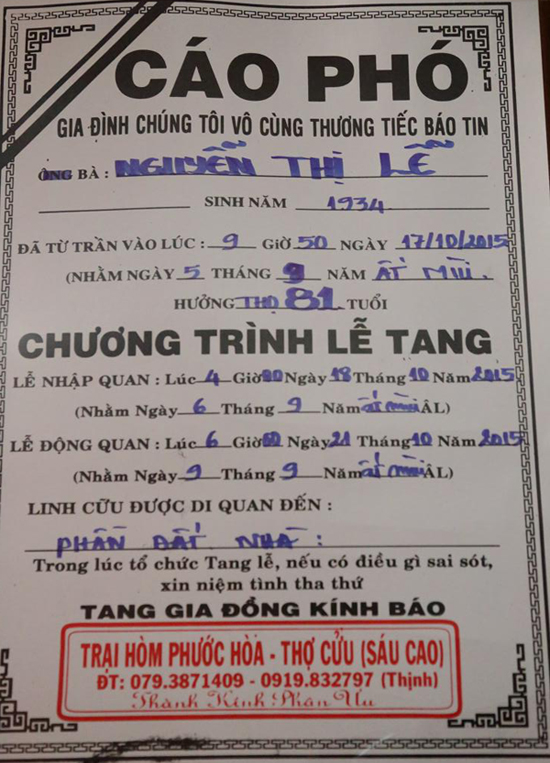 CÁO PHÓ
GIA ĐÌNH CHÚNG TÔI VÔ CÙNG THƯƠNG TIẾC BÁO TIN
ÔNG BÀ : NGUYỄN THỊ LỄ
SINH NĂM 1934
ĐÃ TỪ TRẦN VÀO LÚC : 9 GIỜ 50 NGÀY 17/10/2015
(NHẰM NGÀY 5 THÁNG 9 NĂM ẤT MÙI.
HƯỞNG THỌ 81 TUỔI
CHƯƠNG TRÌNH LỄ TANG
LỄ NHẬP QUAN : Lúc 4 Giờ 00 Ngày 18 Tháng 10 Năm 2015
(Nhằm Ngày 6 Tháng 9 Năm ất mùi ÂL)
LỄ ĐỘNG QUAN : Lúc 6 Giờ Ngày 21 Tháng 10 Năm 2015
(Nhằm Ngày 9 Tháng 9 Năm ất mùi ÂL)
LINH CỮU ĐƯỢC DI QUAN ĐẾN :
PHẦN ĐẤT NHÀ :
Trong lúc tổ chức Tang lễ, nếu có điều gì sai sót,
xin niệm tình tha thứ
TANG GIA ĐỒNG KÍNH BÁO
TRẠI HÒM PHƯỚC HÒA - THỢ CỬU (SÁU CAO)
ĐT: 079.3871409 - 0919.832797 (Thịnh)
Thành Kính Phân Ưu